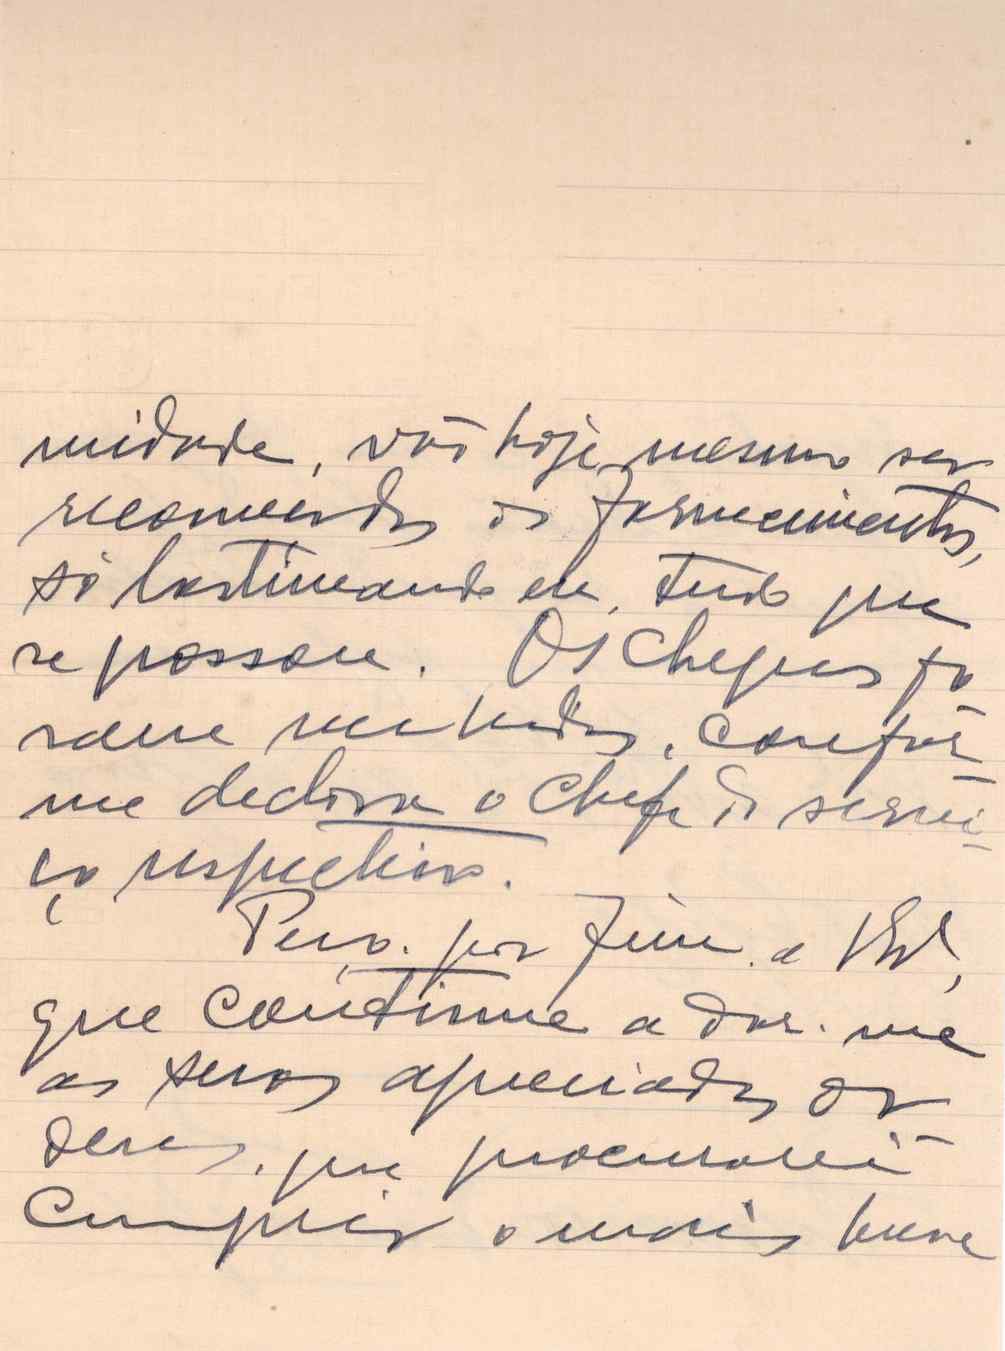 midade, vão hoje mesmo ser
recomeçados os fornecimentos,
só lastimando eu, tudo que
se passou. Os cheques fo
ram recebidos, confór-
me declara o Chefe do servi-
ço respectivo.
Peço. por fim. a V. Exª,
que continue a dar-me
as suas apreciadas or
dens, que procurarei
cumprir o mais breve